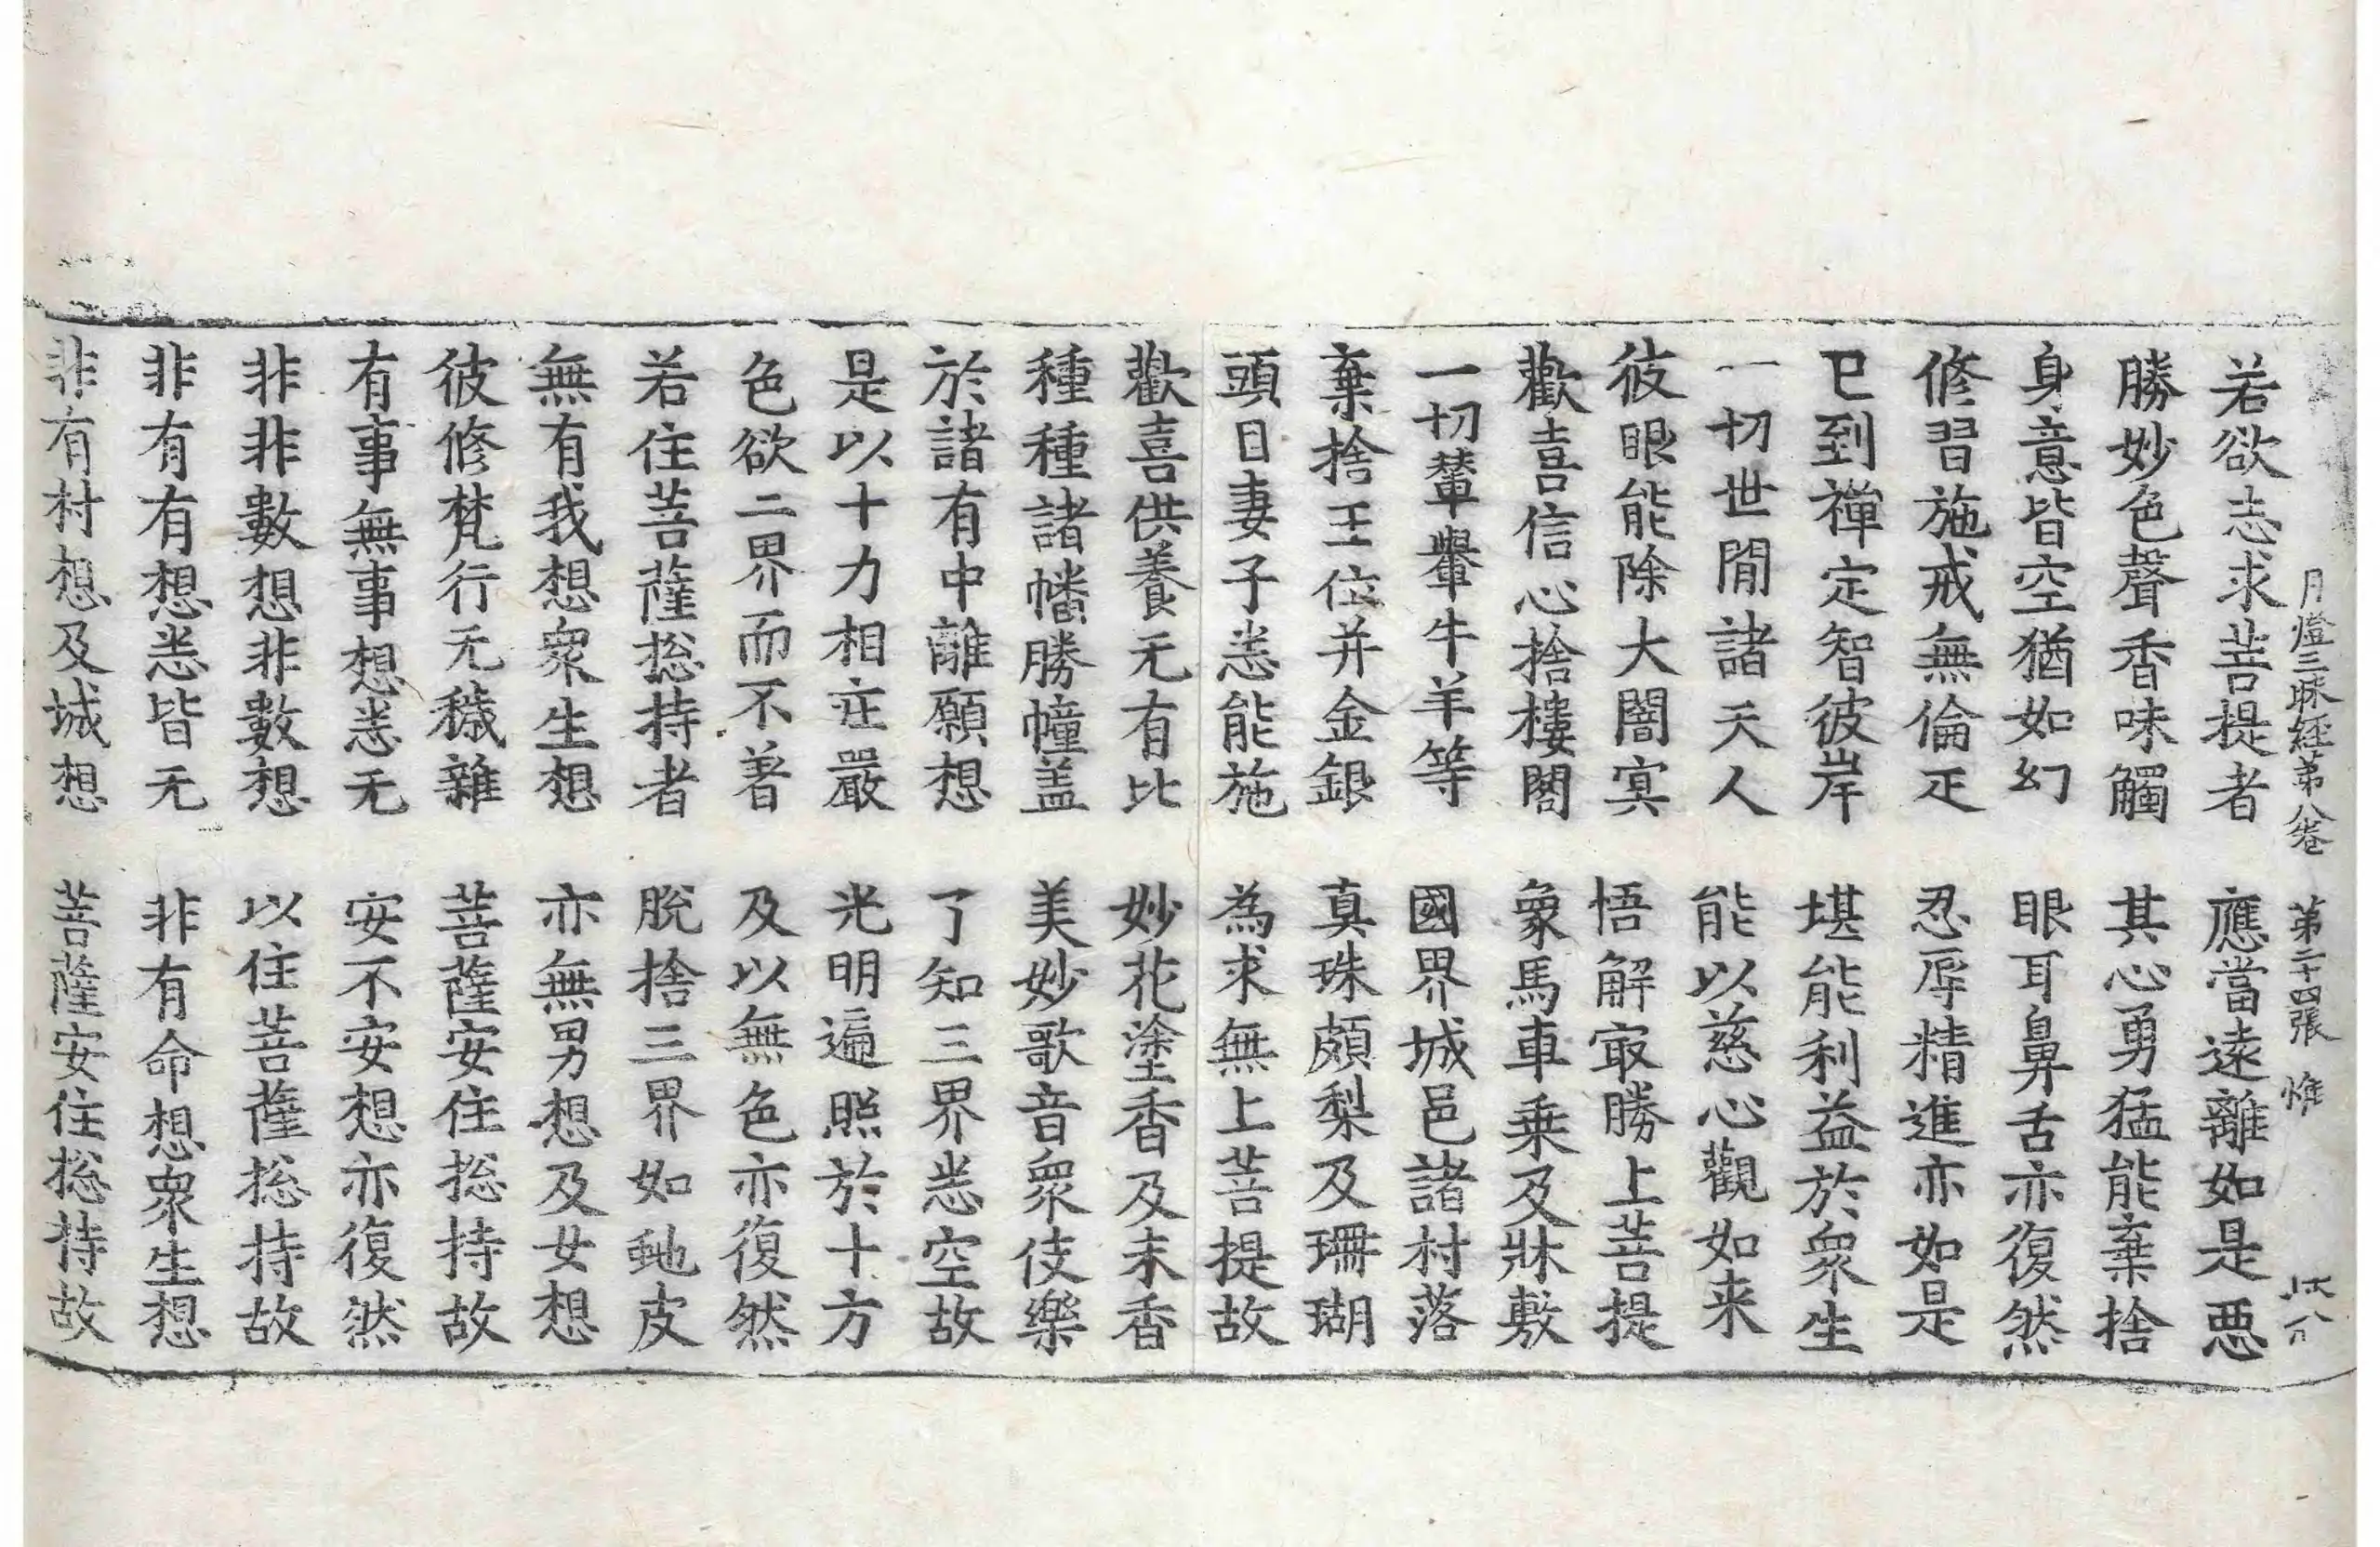 月燈三昧經第八卷　第二十四張　惟
若欲志求菩提者　應當遠離如是惡
勝妙色聲香味觸　其心勇猛能棄捨
身意皆空猶如幻　眼耳鼻舌亦復然
修習施戒無倫疋　忍辱精進亦如是
已到禪定智彼岸　堪能利益於衆生
一切世閒諸天人　能以慈心觀如来
彼眼能除大闇㝠　悟解㝡勝上菩提
歡喜信心捨樓閣　象馬車乗及牀敷
一切輦轝牛羊等　國界城邑諸村落
棄捨王位并金銀　真珠頗梨及珊瑚
頭目妻子悉能施　為求無上菩提故
歡喜供養无有比　妙花塗香及末香
種種諸幡勝幢盖　美妙歌音衆伎樂
於諸有中離願想　了知三界悉空故
是以十力相莊嚴　光明遍照於十方
色欲二界而不著　及以無色亦復然
若住菩薩捴持者　脫捨三界如虵皮
無有我想衆生想　亦無男想及女想
彼修梵行无穢雜　菩薩安住捴持故
有事無事想悉无　安不安想亦復然
非非數想非數想　以住菩薩捴持故
非有有想悉皆无　非有命想衆生想
非有村想及城想　菩薩安住捴持故